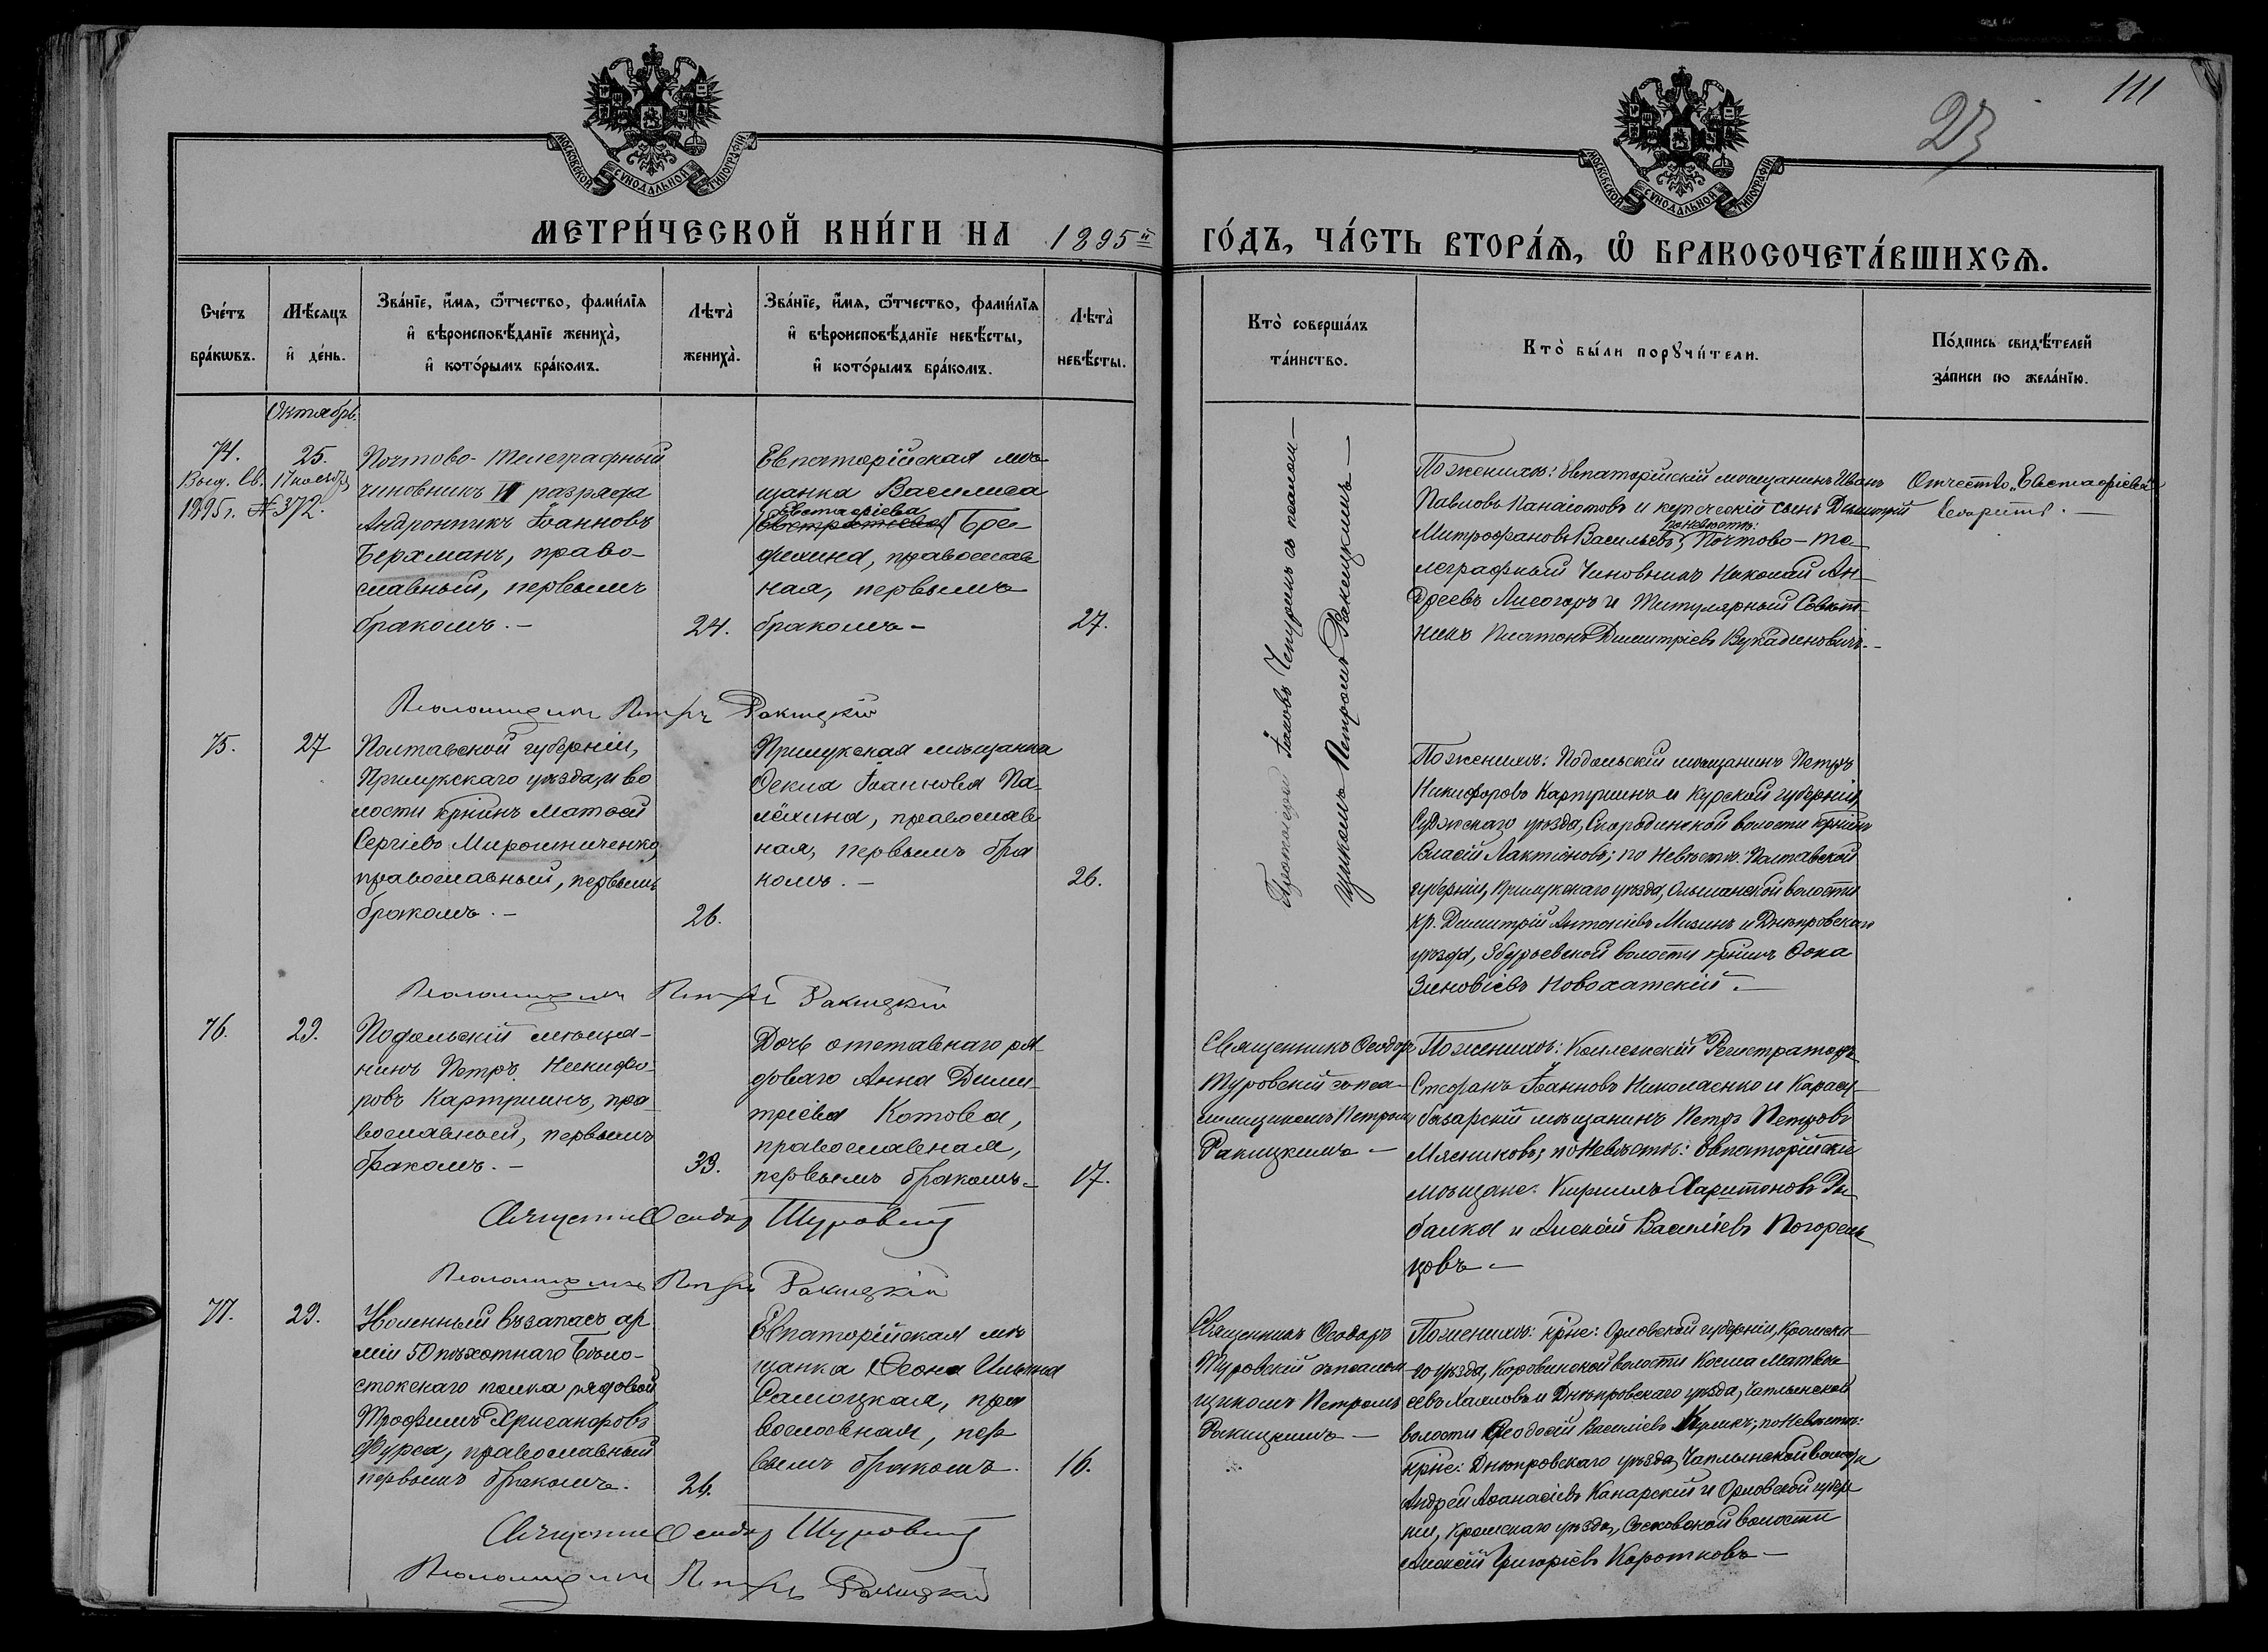 111
23
МОСКОВСКОЙ СѴНОДАЛЬНОЙ ТИПОГРАФІИ
МОСКОВСКОЙ СѴНОДАЛЬНОЙ ТИПОГРАФІИ
МЕТРИ́ЧЕСКОЙ КНИ́ГИ НА 1895й ГО́ДЪ, ЧА́СТЬ ВТОРА́Ѧ, Ѡ҆ БРАКОСОЧЕТА́ВШИХСѦ.
Сче́тъ
бра́кѡвъ.
Мѣ́сяцъ
и҆ де́нь.
Зва́нїе, и҆́мѧ, ѻ҆́тчество, фами́лїѧ
и҆ вѣроисповѣ́данїе жениха̀,
и҆ кото́рымъ бра́комъ.
Лѣта̀
жениха̀.
Зва́нїе, и҆́мѧ, ѻ҆́тчество, фами́лїѧ
и҆ вѣроисповѣ́данїе невѣ́сты,
и҆ кото́рымъ бра́комъ.
Лѣта̀
невѣ́сты.
Кто̀ соверша́лъ
та́инство.
Кто̀ бы́ли порꙋчи́тели.
По́дпись свидѣ́телей
за́писи по жела́нїю.
Октябрь.
74.
Выд. св. 17 ноября
1895 г. № 372.
25.
Почтово-телеграфный
чиновникъ VI разряда
Андроникъ Іоанновъ
Берхманъ, право-
славный, первымъ
бракомъ. –
24.
Евпаторійская мѣ-
щанка Василиса
Евстафіева
православ
ная, первымъ
бракомъ –
27.
Протоіерей Іаковъ Чепуринъ съ псалом-
щикомъ Петромъ Ракицкимъ –
По женихѣ: Евпаторійскій мѣщанинъ Иванъ
Павловъ Панаіотовъ и купеческій сынъ Димитрій
по невѣстѣ:
Митрофановъ Васильевъ; Почтово-те-
леграфный чиновникъ Николай Ан-
дреевъ Лисогоръ и Титулярный Совѣт-
никъ Платонъ Димитріевъ Вукадиновичъ. –
Отчество „Евстафіева"
Псаломщикъ Петръ Ракицкій
75.
27
Полтавской губерніи,
Прилукскаго уѣзда, и во
лости крнинъ Матѳей
Сергіевъ Мирошниченко,
православный, первымъ
бракомъ. –
26.
Прилукская мѣщанка
Ѳекла Іоаннова Па-
лёхина, православ
ная, первымъ бра
комъ. –
26.
По женихѣ: Подольскій мѣщанинъ Петръ
Никифоровъ Картушинъ и Курской губерніи,
Суджскаго уѣзда, Скороднской волости крнинъ
Власій Лактіоновъ; по невѣстѣ: Полтавской
губерніи, Прилукскаго уѣзда, Ольшанской волости
кр. Димитрій Антоніевъ Мизинъ и Днѣпровскаго
уѣзда, Збурьевской волости крнинъ Ѳока
Зиновіевъ Новохатскій. –
Псаломщикъ Петръ Ракицкій
76.
29.
Подольскій мѣща-
нинъ Петръ Никифо-
ровъ Картушинъ, пра-
вославный, первымъ
бракомъ. –
33.
Дочь отставнаго ря-
доваго Анна Дими-
тріева Котова,
православная,
первымъ бракомъ –
17.
Священникъ Ѳеодоръ
Туровскій съ пса-
ломщикомъ Петромъ
Ракицкимъ –
По женихѣ: Коллежскій Регистраторъ
Стефанъ Іоанновъ Николаенко и Карасу-
базарскій мѣщанинъ Петръ Петровъ
Мясниковъ; по невѣстѣ: Евпаторійскіе
мѣщане: Кириллъ Харитоновъ Ры-
балка и Алексѣй Василіевъ Погорель-
цовъ –
Священникъ Ѳеодоръ Туровскій
Псаломщикъ Петръ Ракицкій
77.
29.
Уволенный въ запасъ ар
міи 50 пѣхотнаго Бѣло-
стокскаго полка рядовой
Трофимъ Хрисанфовъ
Фурса, православный
первымъ бракомъ.
24.
Евпаторійская мѣ
щанка Ильина
пра
вославная, пер
вымъ бракомъ.
16.
Священникъ Ѳеодоръ
Туровскій съ псалом
щикомъ Петромъ
Ракицкимъ –
По женихѣ: крне: Орловской губерніи, Кромска-
го уѣзда, Коровинской волости Косма Матвѣ-
евъ Халловъ и Днѣпровскаго уѣзда, Чаплынской
волости Ѳеодосій Василіевъ Куликъ; по невѣстѣ:
крне: Днѣпровскаго уѣзда, Чаплынской волости
Андрей Аѳанасіевъ Канарскій и Орловской губер
ніи, Кромскаго уѣзда, Сосковской волости
Алексѣй Григоріевъ Коротковъ –
Священникъ Ѳеодоръ Туровскій
Псаломщикъ Петръ Ракицкій